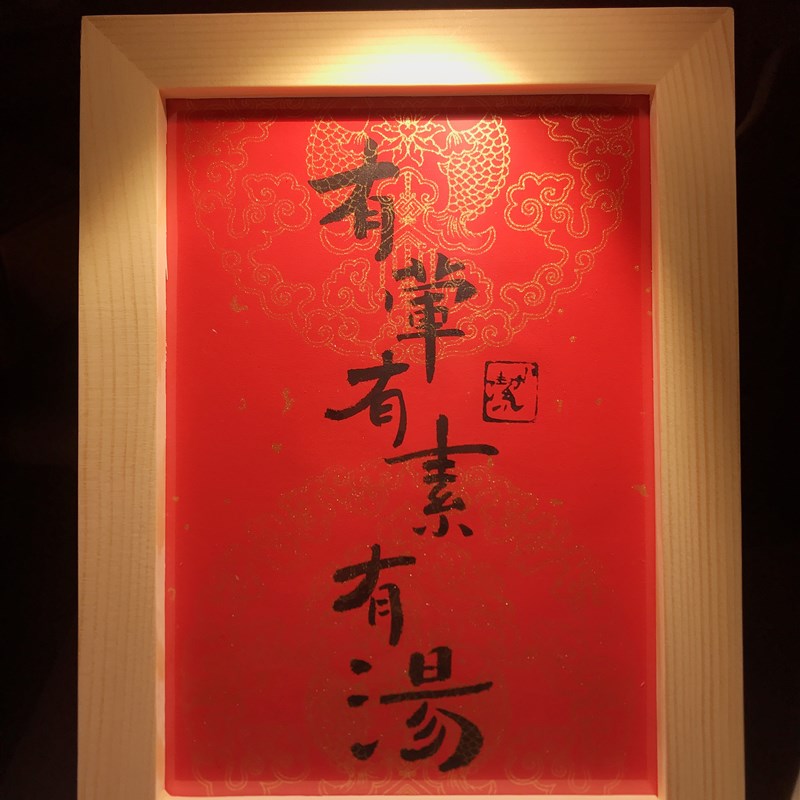 有葷有素有湯
潔